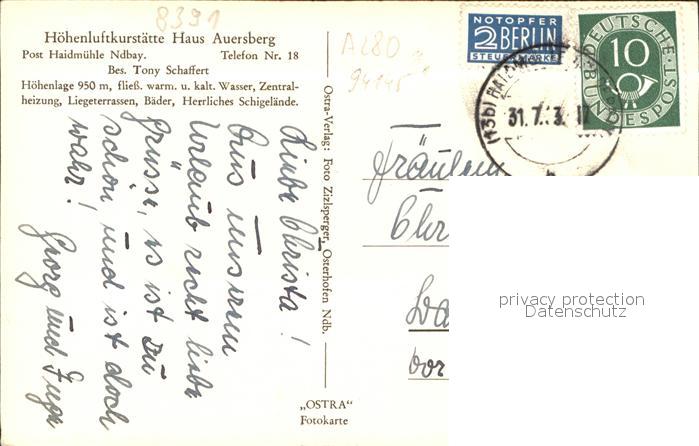 8391
Höhenluftkurstätte Haus Auersberg
Post Haidmühle Ndbay. Telefon Nr. 18
Bes. Tony Schaffert
Höhenlage 950 m, fließ. warm. u. kalt. Wasser, Zentral-
heizung, Liegeterrassen, Bäder, Herrliches Schigelände.
A280
Liebe Christa!
Aus unserem
Urlaub recht liebe
Grüsse, es ist zu
schön und ist doch
wahr!
Georg und Inge
Ostra-Verlag: Foto Zizlsperger, Osterhofen Ndb.
„OSTRA“
Fotokarte
NOTOPFER
2 BERLIN
STEUERMARKE
DEUTSCHE
BUNDESPOST
10
(13b) HAIDMÜHLE
31.7. 3. 17
b
Fräulein
Chr
vor
privacy protection
Datenschutz